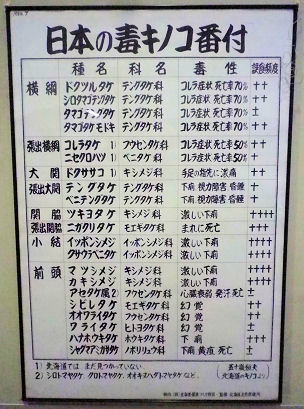 日本の毒キノコ番付
種名 科名 毒性 誤食頻度
横綱 ドクツルタケ テングタケ科 コレラ症状 死亡率70% ++
シロタマゴテングタケ テングタケ科 コレラ症状 死亡率70% ++
タマゴテングタケ テングタケ科 コレラ症状 死亡率70% ±
タマゴタケモドキ テングタケ科 コレラ症状 死亡率70% +
張出横綱 コレラタケ 1) フウセンタケ科 コレラ症状 死亡率50% +
ニセクロハツ 1) ベニタケ科 コレラ症状 死亡率50% +
大関 ドクササコ 1) キシメジ科 手足の指先に激痛 ++
張出大関 テングタケ テングタケ科 下痢 視力障害 昏睡 +
ベニテングタケ テングタケ科 下痢 視力障害 昏睡 +
関脇 ツキヨタケ キシメジ科 激しい下痢 ++++
張出関脇 ニガクリタケ モエギタケ科 まれに死亡 +++
小結 イッポンシメジ イッポンシメジ科 激しい下痢 ++++
クサウラベニタケ イッポンシメジ科 激しい下痢 ++++
前頭 マツシメジ キシメジ科 激しい下痢 +++
カキシメジ キシメジ科 激しい下痢 ++++
アセタケ属 2) フウセンタケ科 心臓衰弱 発汗 死亡 ±
シビレタケ モエギタケ科 幻覚 ++
オオワライタケ フウセンタケ科 幻覚 ++
ワライタケ ヒトヨタケ科 幻覚 ±
ハナホウキタケ ホウキタケ科 下痢 +++
シャグマアミガサタケ ノボリリュウ科 下痢 黄疸 死亡 ±
1) 北海道では まだ見つかっていない
2) シロトマヤタケ、クロトマヤタケ、オオキヌハダトマヤタケなど。
五十嵐恒夫
北海道のキノコより